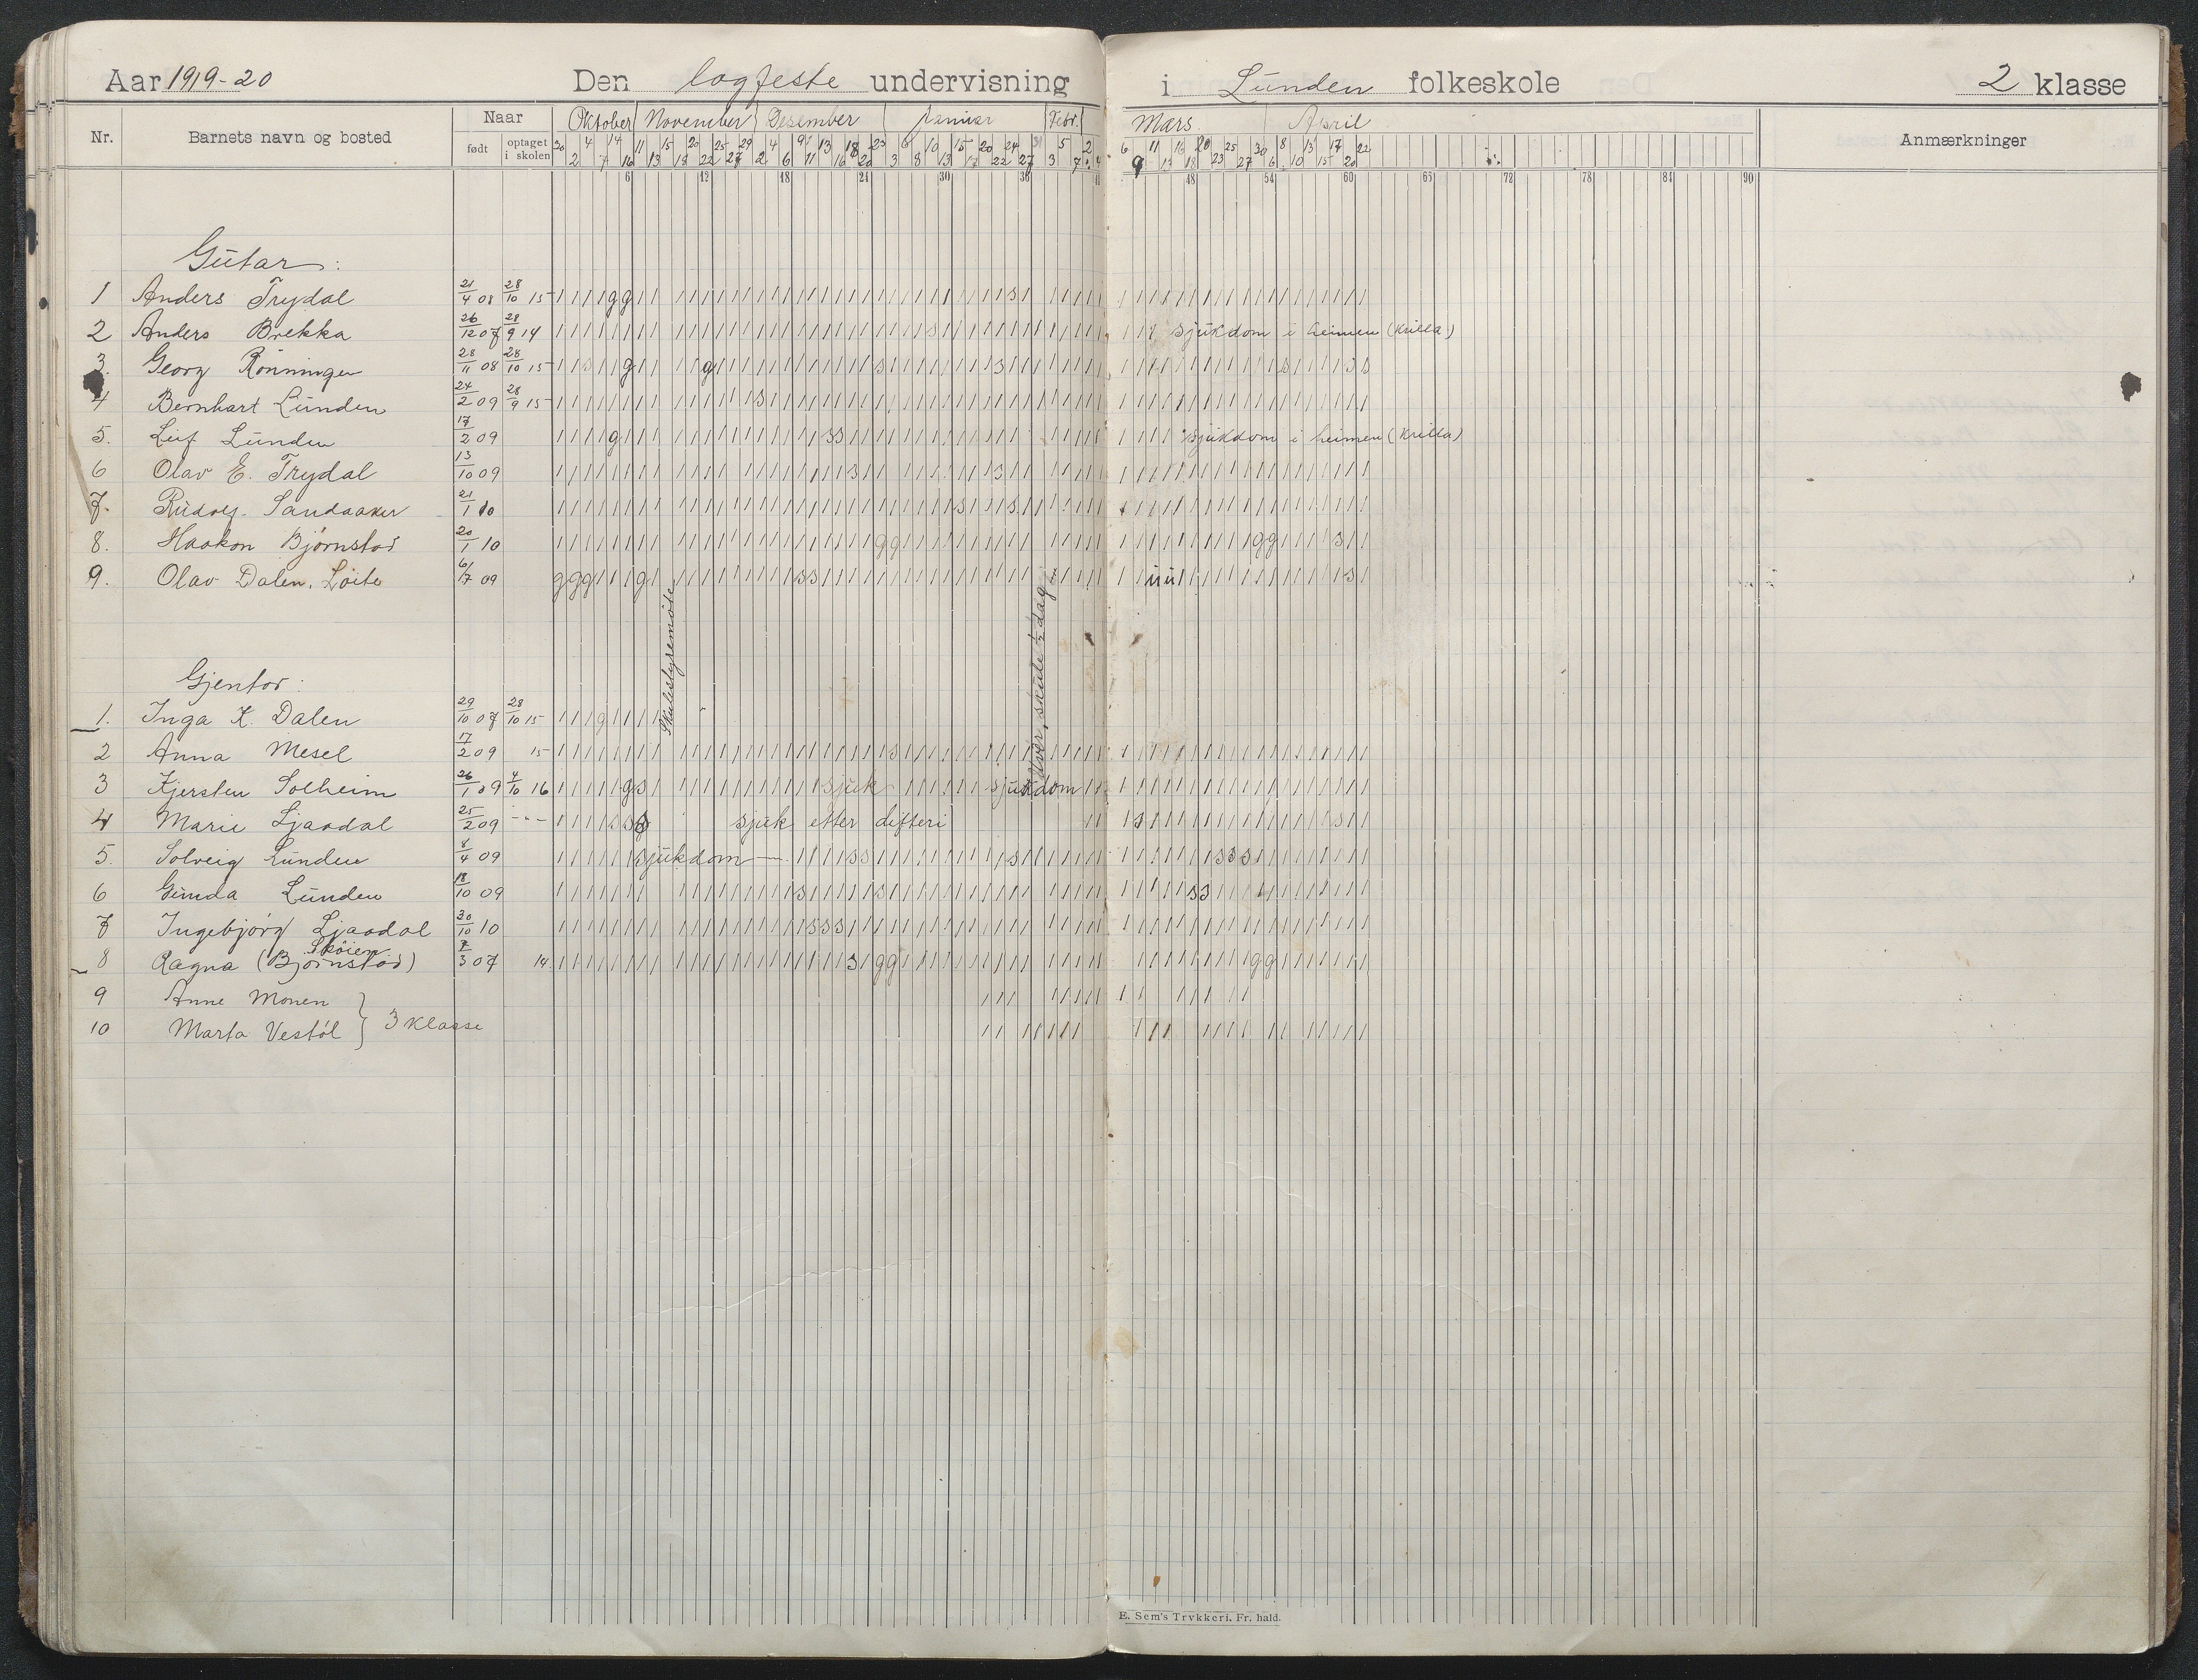 Aar 1919-20 Den logfeste undervisning i Lunden folkeskole 2 klasse
Nr. Barnets navn og bosted Naar født optaget i skolen Oktober November Desember Januar Febr. Mars April Anmærkninger
6 12 18 24 30 36 48 54 60 66 72 78 84 90
Gutar:
1 Anders Trydal 21/4 08 28/10 15
2 Anders Brekka 26/12 07 28/9 14 sjukdom i heimen (krilla)
3. Georg Rönningen 28/11 08 28/10 15
4 Bernhart Lunden 24/2 09 28/9 15
5. Leif Lunden 17/2 09 sjukdom i heimen (krilla)
6 Olav E. Trydal 13/10 09
7. Rudolf Sandaaker 21/1 10
8. Haakon Björnstad 20/1 10
9. Olav Dalen, Löite 6/17 09
Skulestyremöte
Uver, skule ½ dag
Gjentor:
1. Inga K. Dalen 29/10 07 28/10 15
2 Anna Mesel 17/2 09 15
3 Kjersten Solheim 26/1 09 4/10 16 sjuk sjukdom
4 Marie Ljaadal 25/2 09 -"- sjuk etter difteri
5. Solveig Lunden 8/4 09 sjukdom
6 Gunda Lunden 18/10 09
7 Ingebjörg Ljaadal 20/10 10
Sköien
8 Ragna (Björnstad) 7/3 07 14
9 Anne Monen
10 Marta Vestöl } 3 klasse
E. Sem's Trykkeri. Fr. hald.